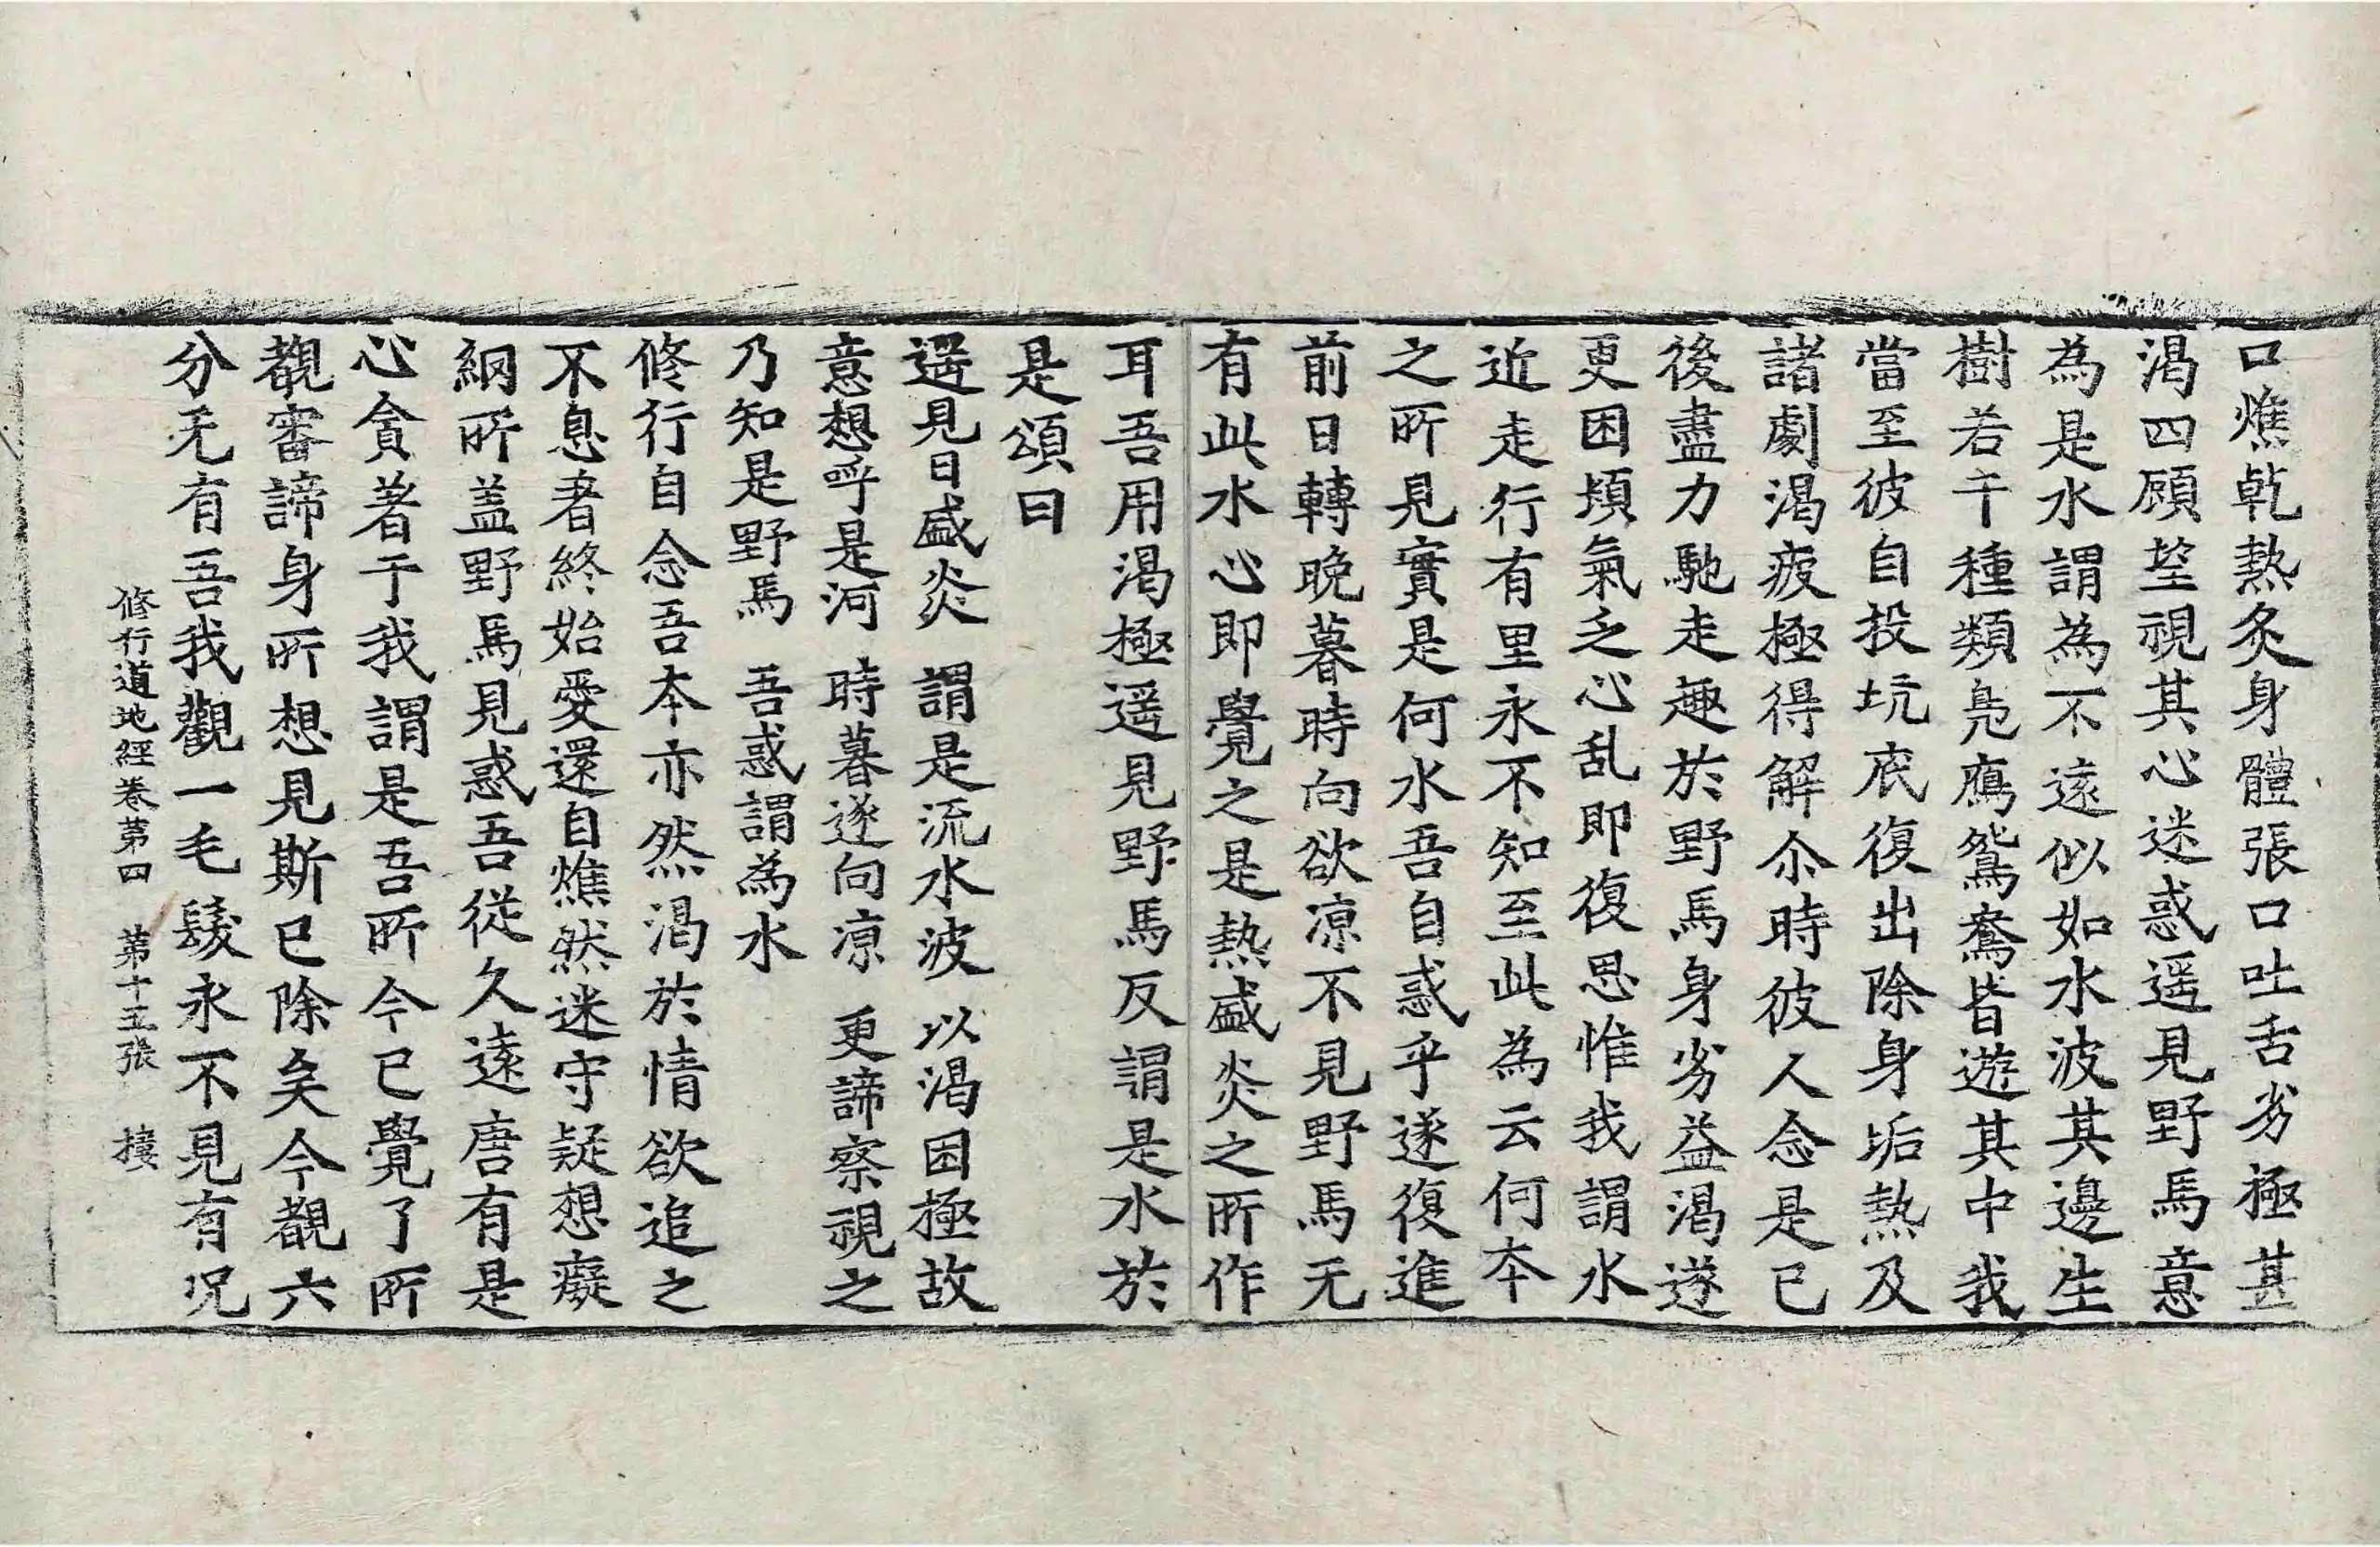 口燋乾熱炙身體張口吐舌劣極甚
渴四顧望視其心迷惑遥見野馬意
為是水謂為不遠似如水波其邊生
樹若干種類鳧鴈鴛鴦皆遊其中我
當至彼自投坑底復出除身垢熱及
諸劇渴疲極得解尒時彼人念是已
後盡力馳走趣於野馬身劣益渴遂
更困頓氣乏心乱即復思惟我謂水
近走行有里永不知至此為云何本
之所見實是何水吾自惑乎遂復進
前日轉晚暮時向欲凉不見野馬无
有此水心即覺之是熱盛炎之所作
耳吾用渴極遥見野馬反謂是水於
是頌曰
遥見日盛炎　謂是流水波　以渴困極故
意想呼是河　時暮遂向凉　更諦察視之
乃知是野馬　吾惑謂為水
修行自念吾本亦然渴於情欲追之
不息著終始愛還自燋然迷守疑想癡
網所盖野馬見惑吾從久遠唐有是
心貪著于我謂是吾所今已覺了所
觀審諦身所想見斯已除矣今觀六
分无有吾我觀一毛髮永不見有况
修行道地經卷第四　第十五張